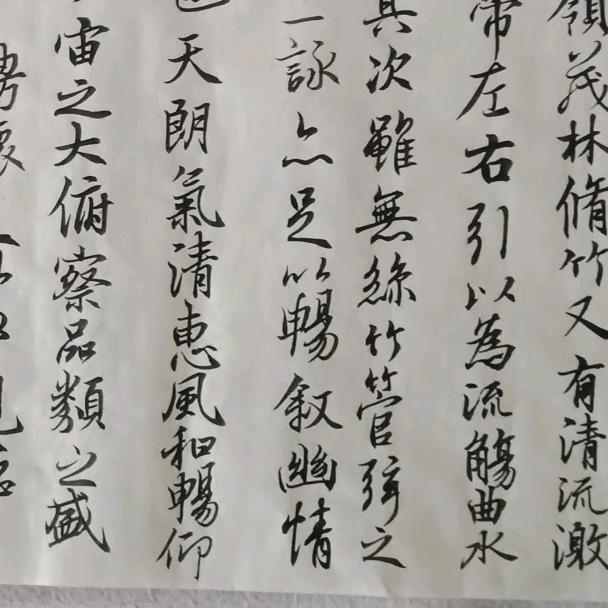 領茂林脩竹又有清流激
帶左右引以為流觴曲水
其次雖無絲竹管弦之
一詠亦足以暢叙幽情
天朗氣清惠風和暢仰
宙之大俯察品類之盛
騁懷